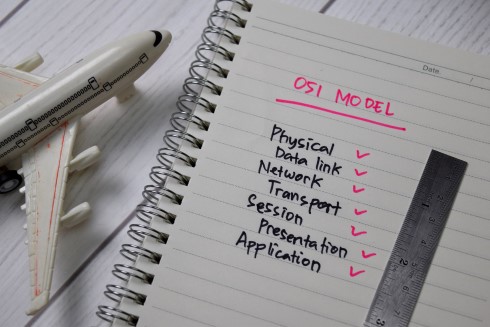 Date
OSI MODEL
Physical
Data link
Network
Transport
Session
Presentation
Application
1
2
3